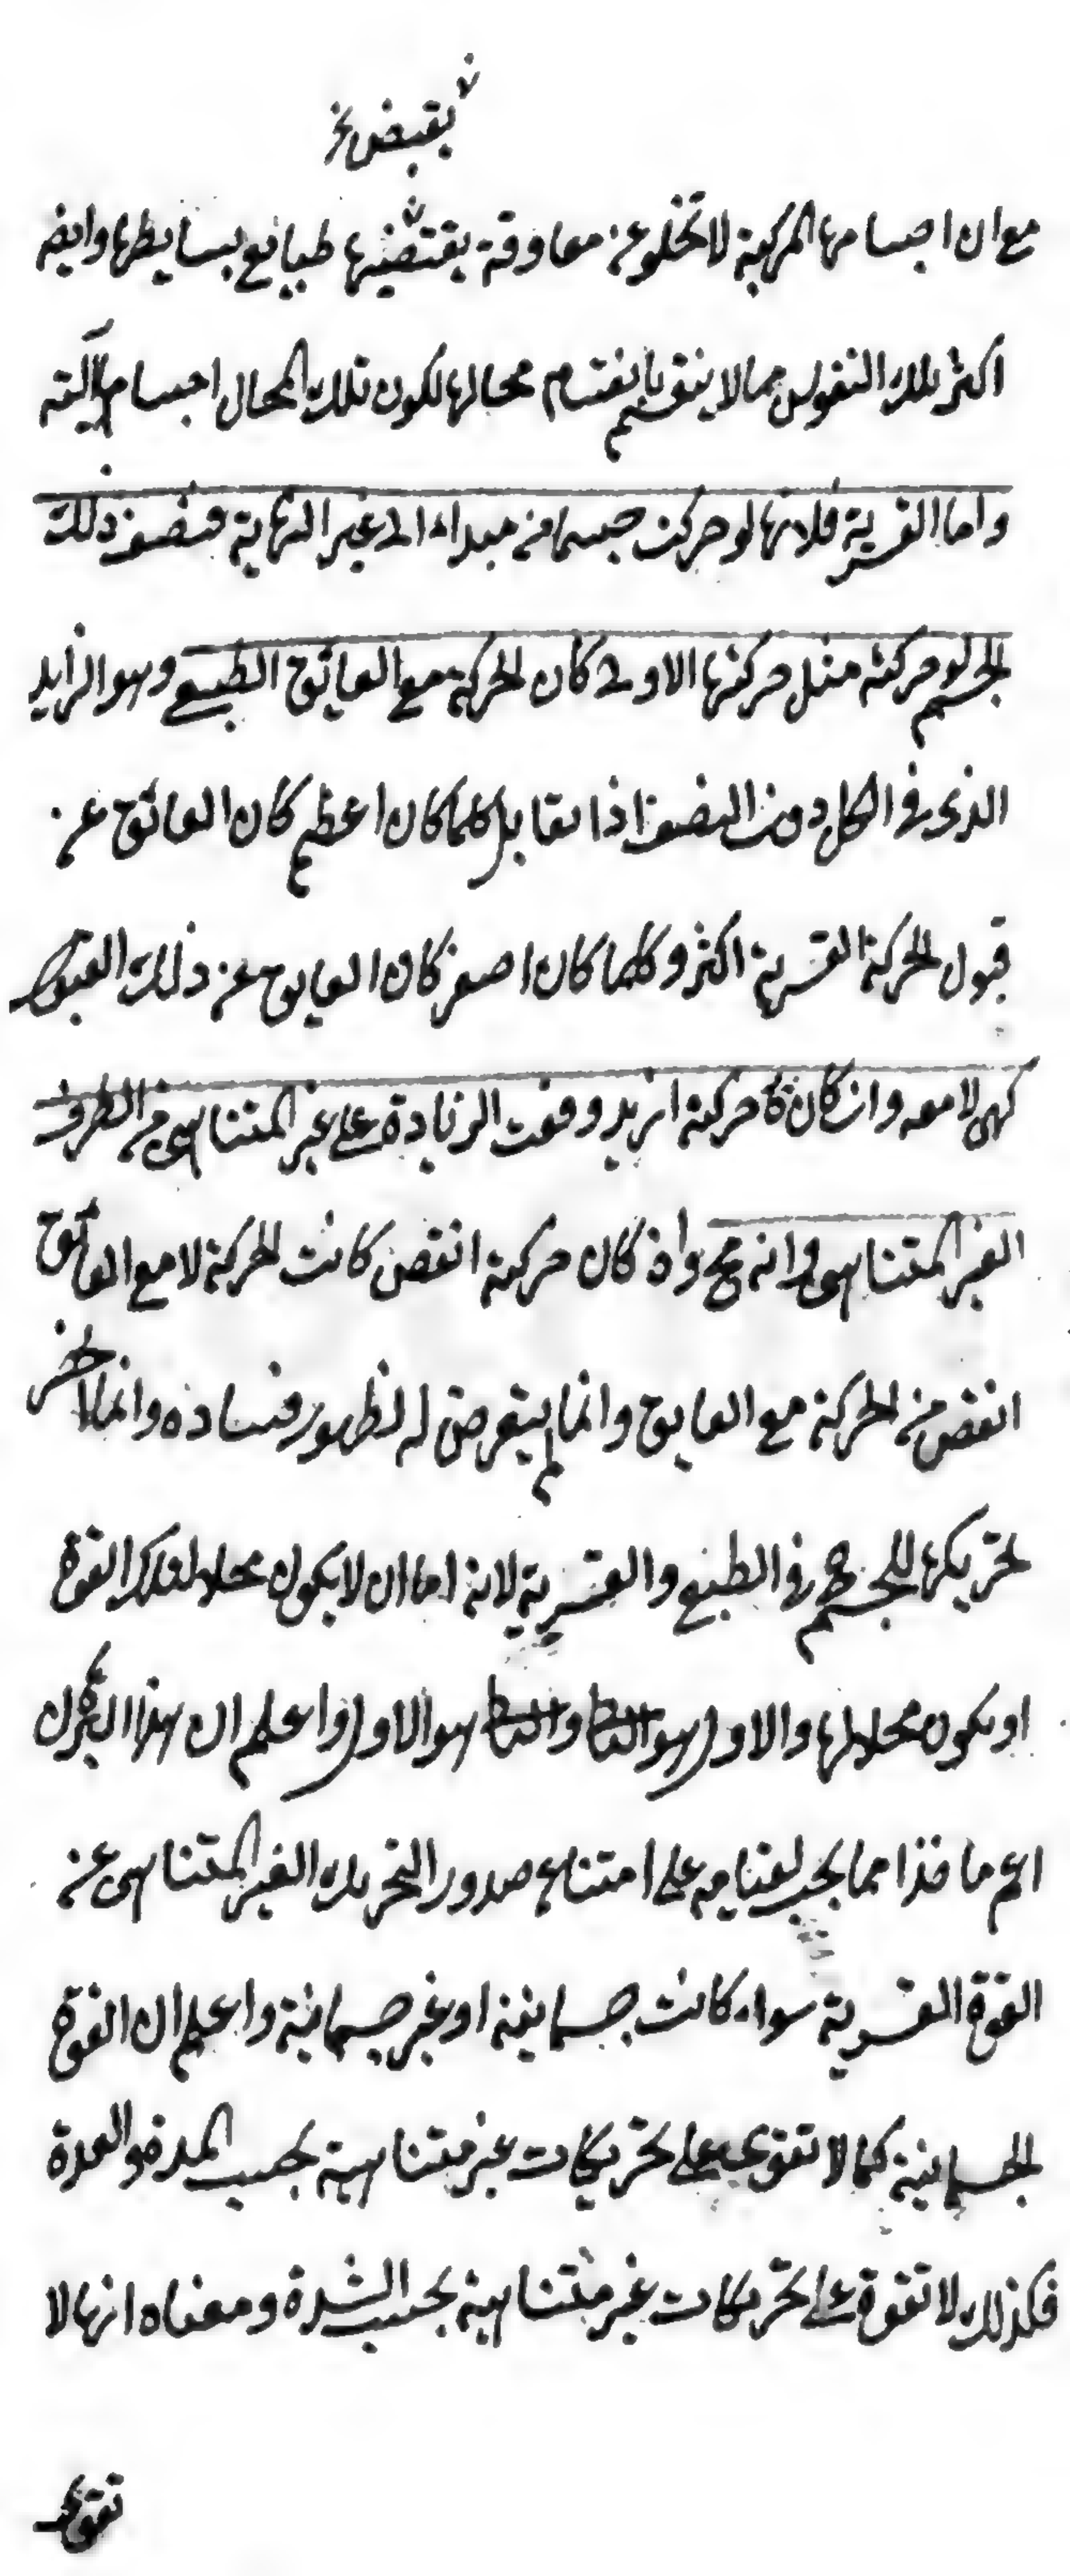 يقبض نخ
مع ان اجسامها المركبة لا تخلو عن معاوقة يقتضيها طبايع بسايطها وايضه
اكثر تلك النفوس مما لا ينقسم بانقسام محالها لكون تلك المحال اجساما آلية
واما القسرية فلانها لو حركت جسما من مبداء الى غير النهاية فنصف ذلك
الجسم لو حركته مثل حركتها الاولى كان الحركة مع العايق الطبيعي وهو الزايد
الذى فى الكل دون النصف اذا تقابل كلما كان اعظم كان العائق عن
قبول الحركة القسرية اكثر وكلما كان اصغر كان العايق عن ذلك القبول
كهى لا معه وان كان حركة ازيد وقعت الزيادة على غير المتناهى من الطرف
الغير المتناهى وانه مح وان كان حركة انقص كانت الحركة لا مع العائق
انقص من الحركة مع العايق وانما لم يتعرض له لظهور فساده وانما
تحريكها للجسم فى الطبع والقسرية لانه اما ان لا يكون محلا لتلك القوة
او يكون محلا لها والاول هو والثانى هو الاول واعلم ان هذا
اعم ما خذا مما يجب لقيامه على امتناع صدور التحريك الغير المتناهى عن
القوة القسرية سواء كانت جسمانية او غير جسمانية واعلم ان القوة
الجسمانية كما لا تقوى على تحريكات غير متناهية بحسب المدة والعدة
فكذلك لا تقوة على تحريكات غير متناهية بحسب الشدة ومعناه انها لا
تقوى